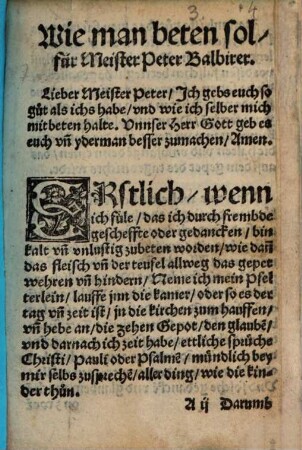 3. 4
Wie man beten sol/
für Meister Peter Balbirer.
Lieber Meister Peter/ Jch gebs euch so
gůt als ichs habe/ vnd wie ich selber mich
mit beten halte. Vnnser Herr Gott geb es
euch vñ yderman besser zumachen/ Amen.
ERstlich/ wenn
ich füle/ das ich durch frembde
gescheffte oder gedancken/ bin
kalt vñ vnlustig zubeten worden/ wie dañ
das fleisch vñ der teufel allweg das gepet
wehren vñ hindern/ Neme ich mein Psel
terlein/ lauffe jnn die kamer/ oder so es der
tag vñ zeit ist/ in die kirchen zum hauffen/
vñ hebe an/ die zehen Gepot/ den glaubē/
vnd darnach ich zeit habe/ ettliche sprüche
Christi/ Pauli oder Psalmē/ mündlich bey
mir selbs zusprechē/ aller ding/ wie die kin
der thůn.
A ij Darumb